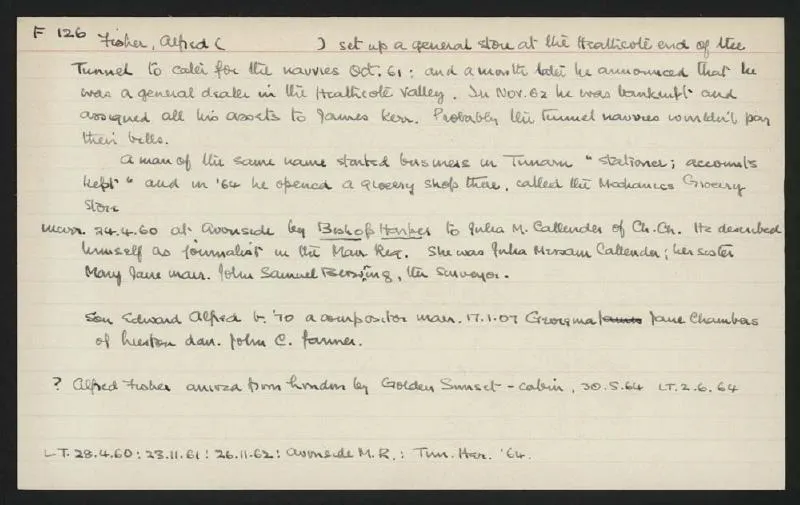 F 126 Fisher, Alfred ( ) set up a general store at the Heathcote end of the
Tunnel to cater for the navvies Oct. 61: and a month later he announced that he
was a general dealer in the Heathcote Valley. In Nov. 62 he was bankrupt and
assigned all his assets to James Kerr. Probably the tunnel navvies wouldn't pay
their bills.
A man of the same name started business in Timaru "stationer; accounts
kept" and in '64 he opened a grocery shop there, called the Mechanics Grocery
Store
marr. 24.4.60 at Avonside by Bishop Harper to Julia M. Callender of Ch.Ch. He described
himself as journalist in the Marr Reg. She was Julia Callender; her sister
Mary Jane marr. John Samuel, the surveyor.
Son Edward Alfred b. '70 a compositor marr. 17.1.07 Georgina James Jane Chambers
of Leeston dau. John C. farmer.
? Alfred Fisher arrived from London by Golden Sunset - cabin, 30.5.64 LT. 2.6.64
LT. 28.4.60: 23.11.61: 26.11.62: Avonside M.R.: Tim. Her. '64.